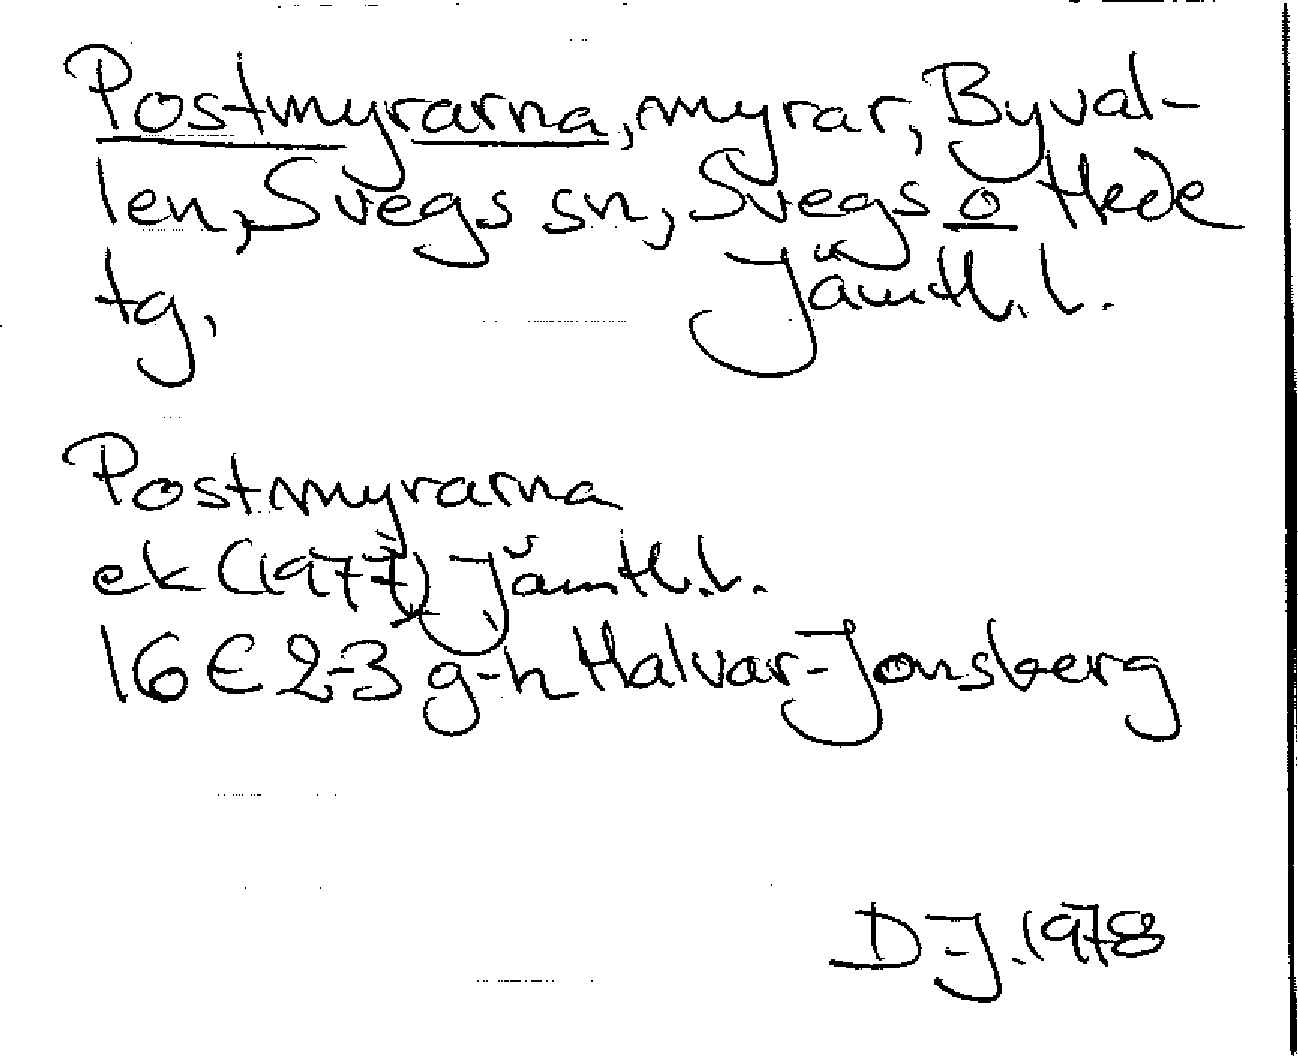 Postmyrarna, myrar, Byval-
len, Svegs sn, Svegs o Hede
tg, Jämtl. l.
Postmyrarna
ek (1977) Jämtl. l.
16 E 2-3 g-h Halvar-Jonsberg
D-J. 1978